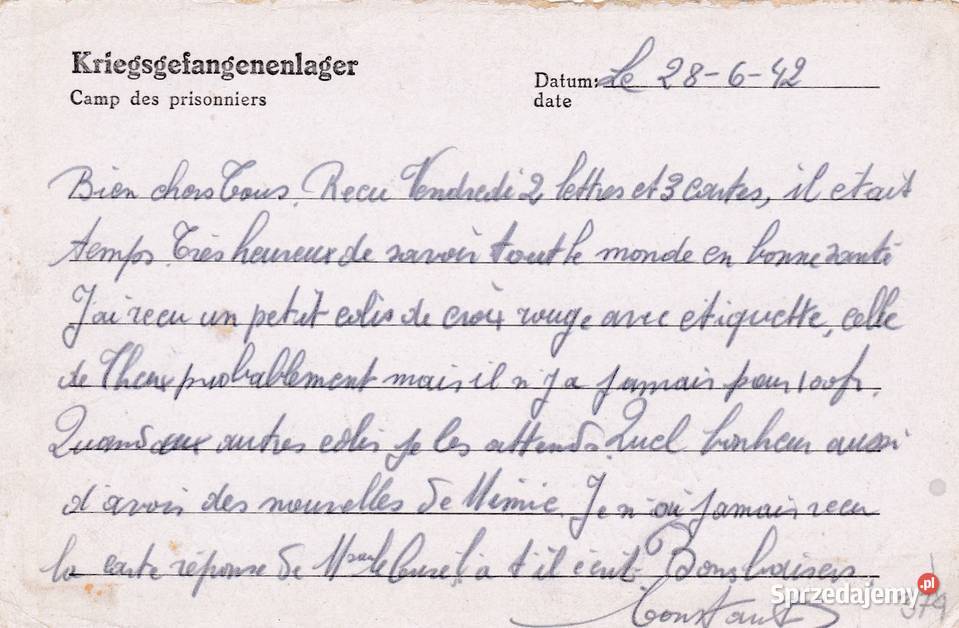 Kriegsgefangenenlager
Camp des prisonniers
Datum: Le 28-6-42
date
Bien chers tous. Recu Vendredi 2 lettres et 3 cartes, il était
temps. Très heureux de savoir tout le monde en bonne santé
J'ai recu un petit colis de croix rouge avec etiquette, celle
de Theux probablement mais il n'y a jamais pour 100 fr.
Quand aux autres colis je les attends. Quel bonheur aussi
d'avoir des nouvelles de Mimie. Je n'ai jamais recu
la carte réponse de Mr l'a t'il écrit? Bons baisers.
Constant
Sprzedajemy.pl